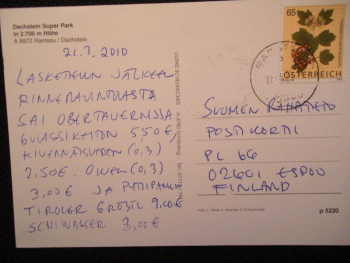 Dachstein Super Park
in 2.700 m Höhe
A 8972 Ramsau / Dachstein
21.3.2010
LASKETTELUN JÄLKEEN
RINNERAVINTOLASTA
SAI OBERTAUERNISSA
GULASSIKEITON 5,50€
KIVENNÄISVEDEN (0,3)
2.50€. OLUEN (0,3)
3,00€ JA PYTTIPANNUN
TIROLER GRÖSTL 9,00€
SCHIWASSER 3,00€
65
ÖSTERREICH
SUOMEN
POSTIKORTTI
PL 66
02601 ESPOO
FINLAND
p 5220